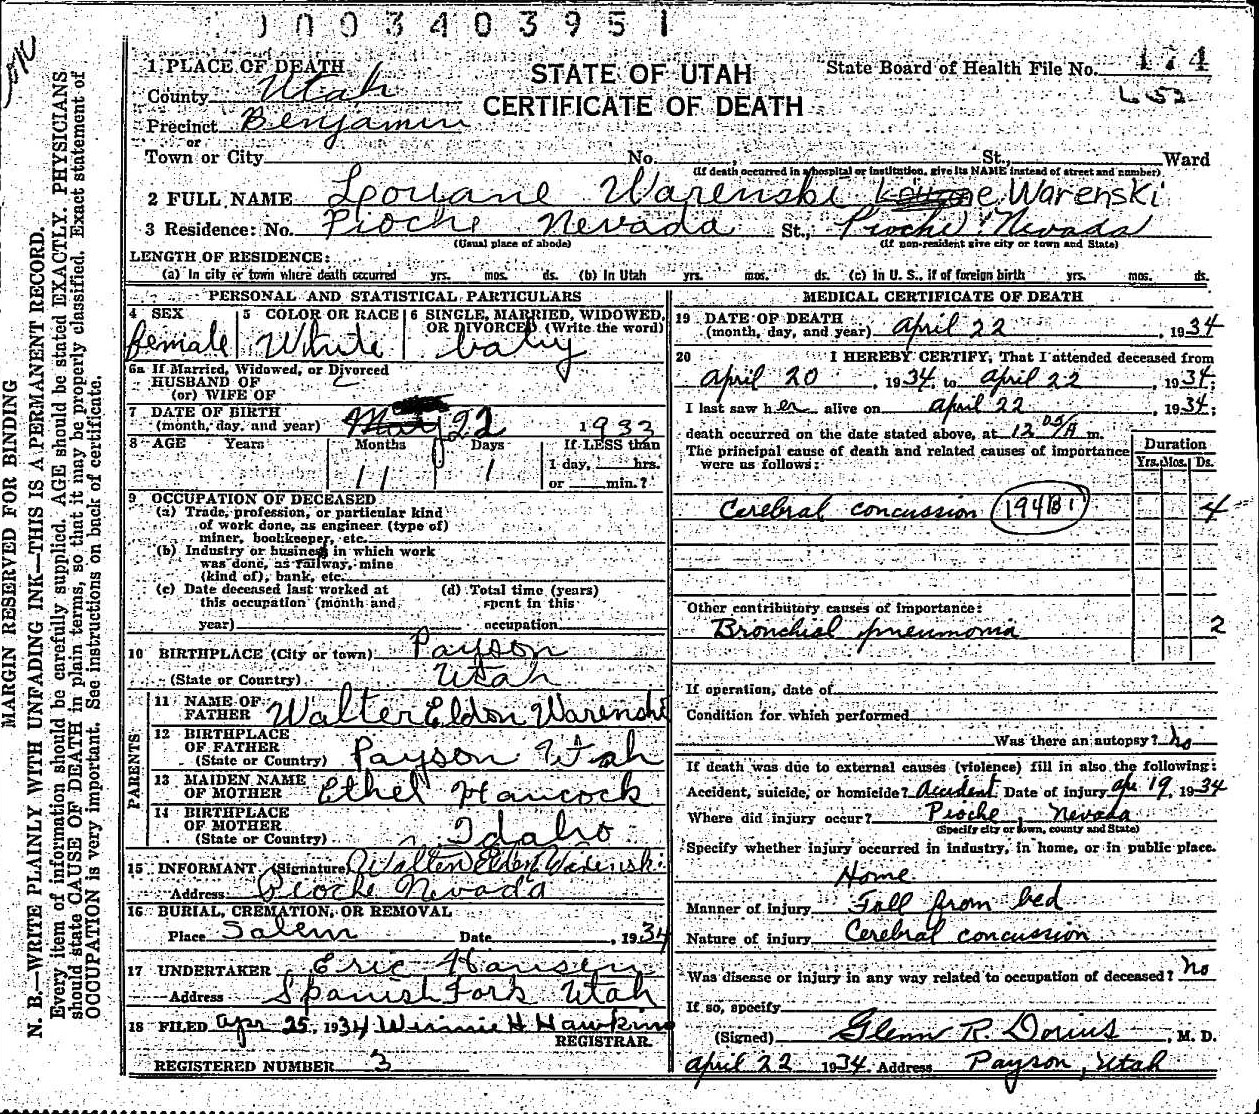 0003403951
STATE OF UTAH
CERTIFICATE OF DEATH
State Board of Health File No. 174
652
1 PLACE OF DEATH
County Utah
Precinct Benjamin
or
Town or City No. , St., Ward
(If death occurred in a hospital or institution, give its NAME instead of street and number)
2 FULL NAME Louane Warenski Warenski
3 Residence: No. Pioche Nevada St., Pioche Nevada
(Usual place of abode) (If non-resident give city or town and State)
LENGTH OF RESIDENCE:
(a) In city or town where death occurred yrs. mos. ds. (b) In Utah yrs. mos. ds. (c) In U. S., if of foreign birth yrs. mos. ds.
PERSONAL AND STATISTICAL PARTICULARS
4 SEX 5 COLOR OR RACE 6 SINGLE, MARRIED, WIDOWED, OR DIVORCED (Write the word)
female White baby
6a If Married, Widowed, or Divorced
HUSBAND OF
(or) WIFE OF
7 DATE OF BIRTH
(month, day, and year) May 22 1933
8 AGE Years Months Days If LESS than
11 1 1 day, hrs.
or min.?
9 OCCUPATION OF DECEASED
(a) Trade, profession, or particular kind
of work done, as engineer (type of)
miner, bookkeeper, etc.
(b) Industry or business in which work
was done, as railway, mine
(kind of), bank, etc.
(c) Date deceased last worked at (d) Total time (years)
this occupation (month and spent in this
year) occupation
10 BIRTHPLACE (City or town) Payson
(State or Country) Utah
PARENTS
11 NAME OF
FATHER Walter Eldon Warenski
12 BIRTHPLACE
OF FATHER
(State or Country) Payson Utah
13 MAIDEN NAME
OF MOTHER Ethel Hancock
14 BIRTHPLACE
OF MOTHER
(State or Country) Idaho
15 INFORMANT (Signature) Walter Eldon Warenski
Address Pioche Nevada
16 BURIAL, CREMATION, OR REMOVAL
Place Salem Date , 1934
17 UNDERTAKER Eric Hansen
Address Spanish Fork Utah
18 FILED Apr 25, 1934 Winnie H Hawkins
REGISTRAR.
REGISTERED NUMBER 3
MEDICAL CERTIFICATE OF DEATH
19 DATE OF DEATH
(month, day, and year) April 22 , 1934
20 I HEREBY CERTIFY, That I attended deceased from
April 20 , 1934, to April 22 , 1934;
I last saw her alive on April 22 , 1934;
death occurred on the date stated above, at 12 05/A m.
The principal cause of death and related causes of importance
were as follows:
Duration
Yrs. Mos. Ds.
Cerebral concussion 194B1 4
Other contributory causes of importance:
Bronchial pneumonia 2
If operation, date of
Condition for which performed
Was there an autopsy? no
If death was due to external causes (violence) fill in also the following:
Accident, suicide, or homicide? Accident Date of injury Apr 19, 1934
Where did injury occur? Pioche, Nevada
(Specify city or town, county and State)
Specify whether injury occurred in industry, in home, or in public place.
Home
Manner of injury Fall from bed
Nature of injury Cerebral concussion
Was disease or injury in any way related to occupation of deceased? no
If so, specify
(Signed) Glenn R. Dorius , M. D.
April 22 1934. Address Payson, Utah
MARGIN RESERVED FOR BINDING
N. B.—WRITE PLAINLY WITH UNFADING INK—THIS IS A PERMANENT RECORD.
Every item of information should be carefully supplied. AGE should be stated EXACTLY. PHYSICIANS
should state CAUSE OF DEATH in plain terms, so that it may be properly classified. Exact statement of
OCCUPATION is very important. See instructions on back of certificate.